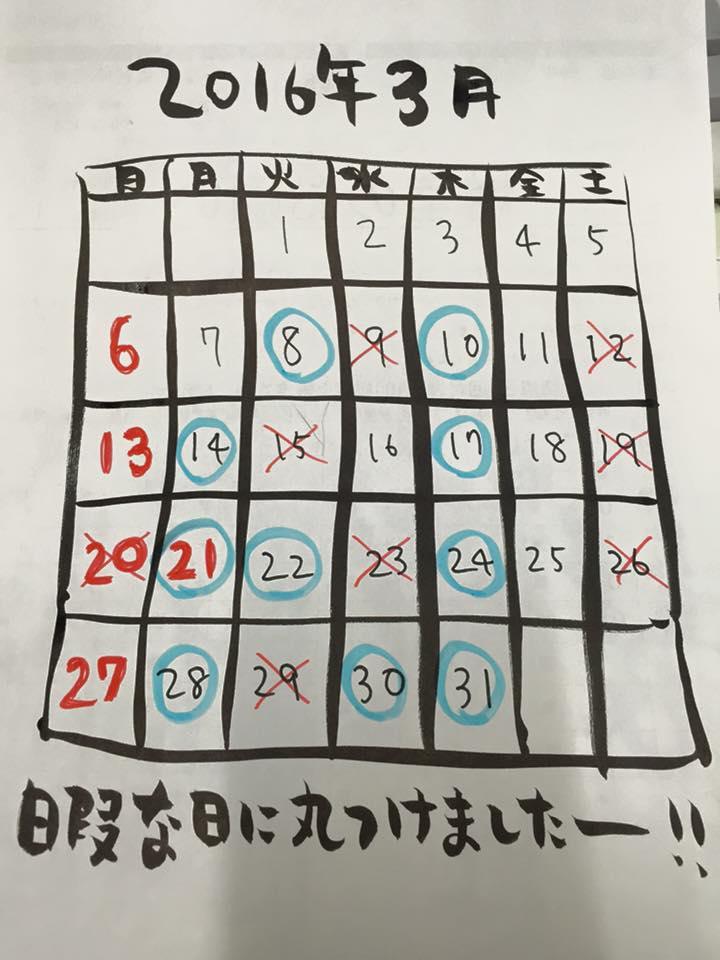 2016年3月
日 月 火 水 木 金 土
1 2 3 4 5
6 7 8 9 10 11 12
13 14 15 16 17 18 19
20 21 22 23 24 25 26
27 28 29 30 31
日暇な日に丸つけましたー!!